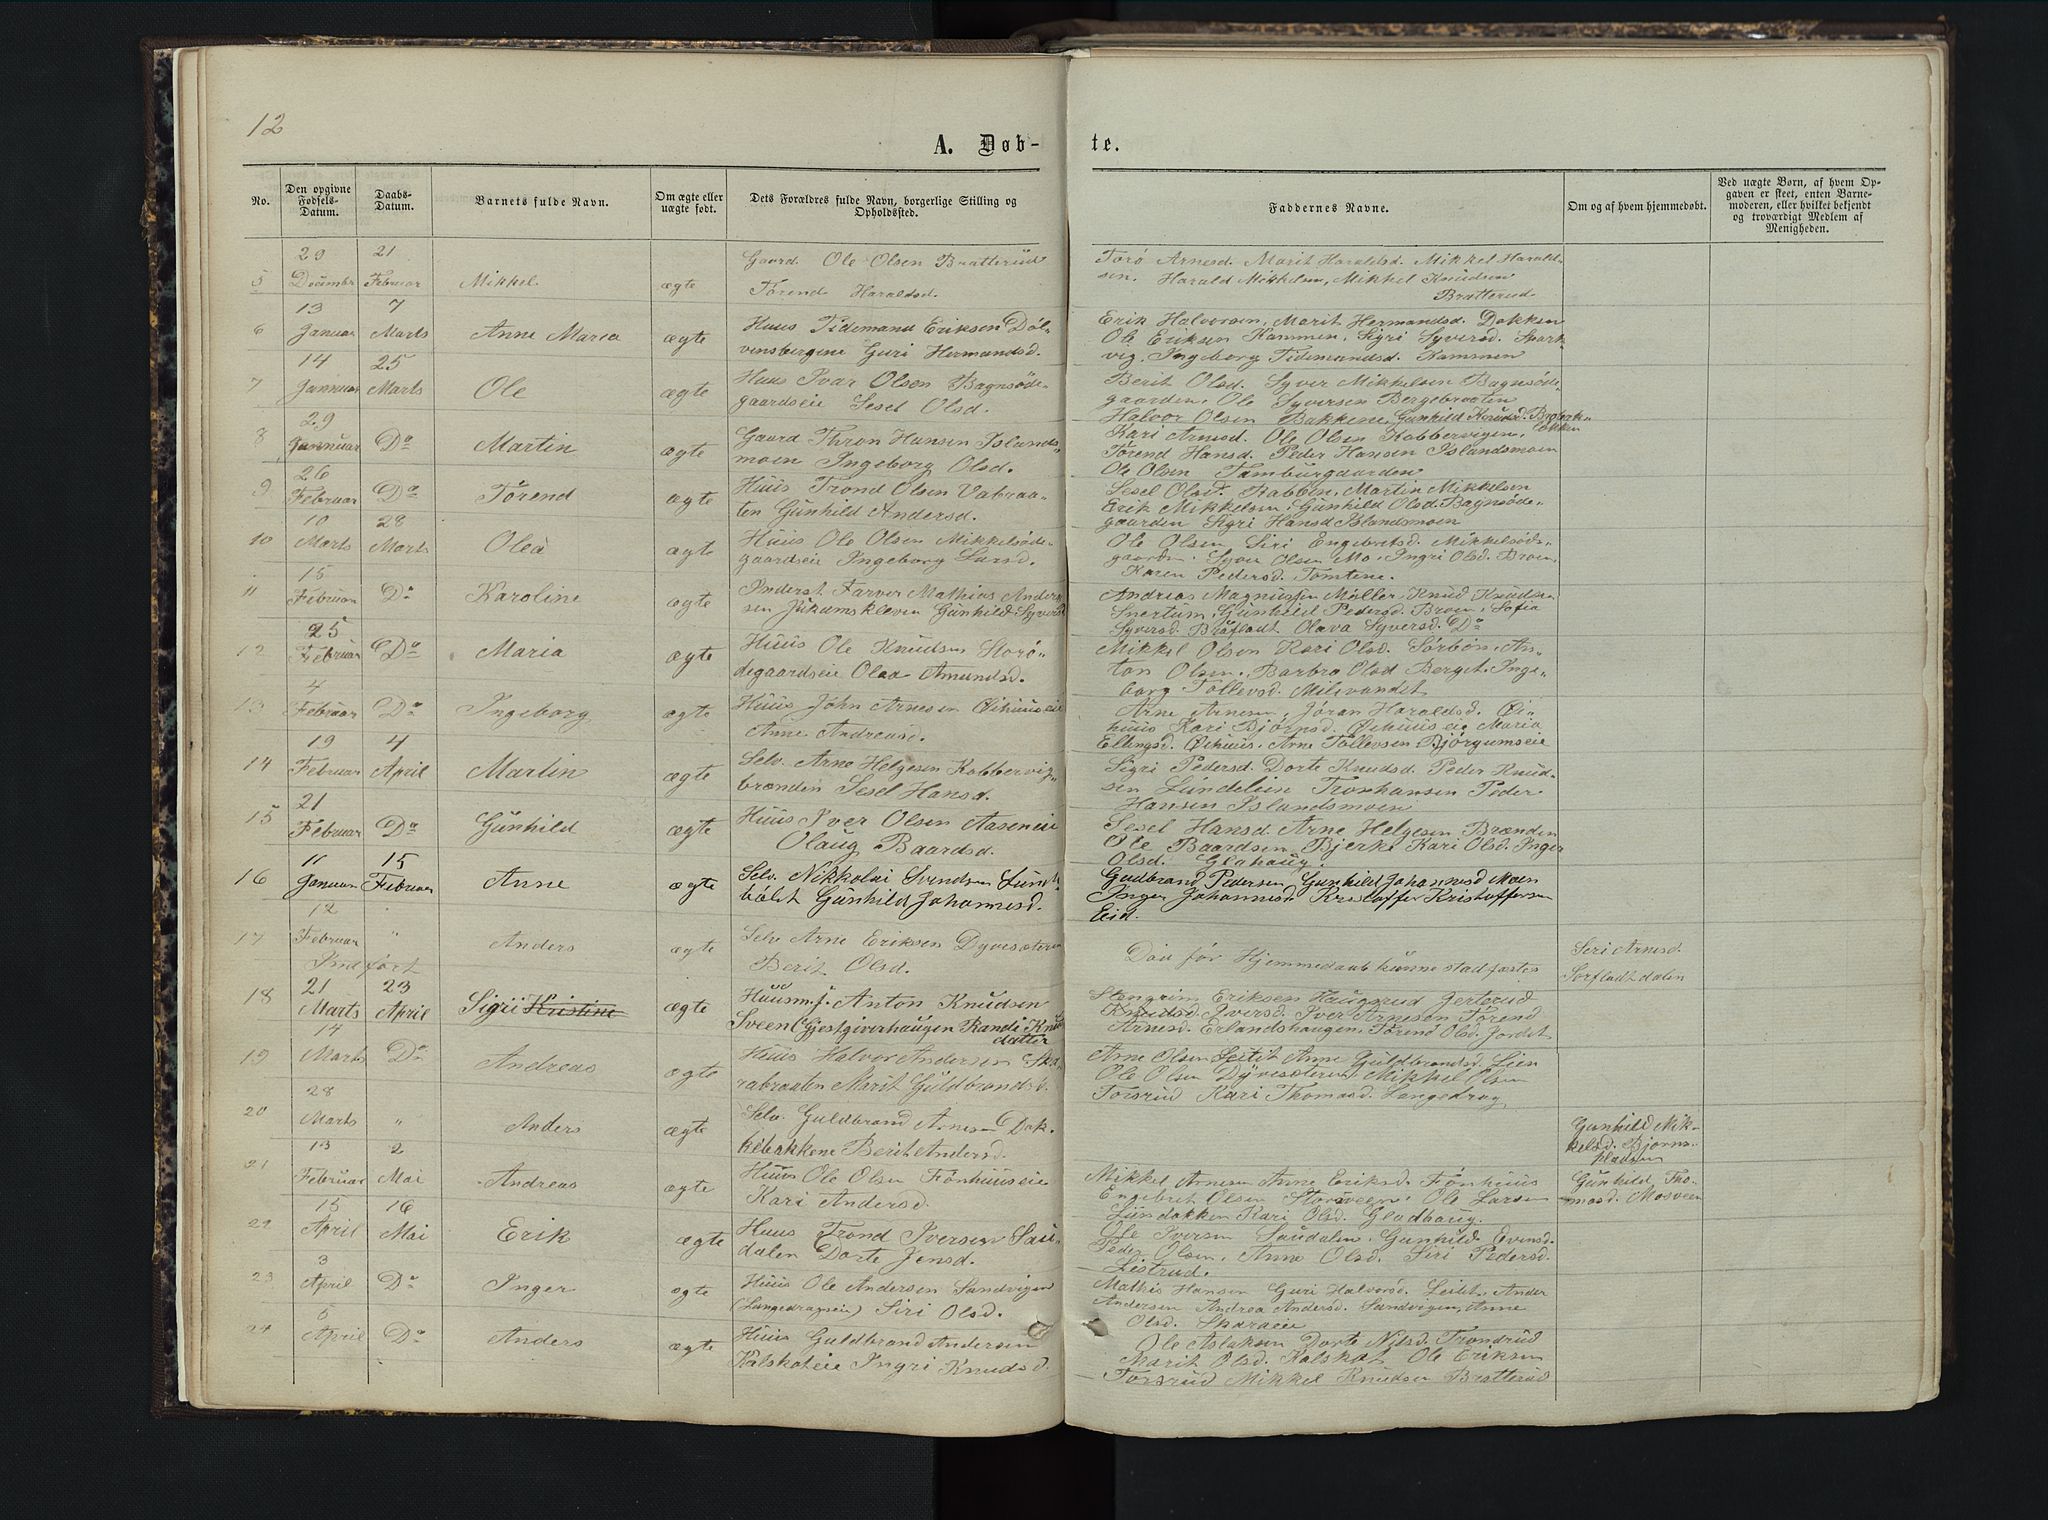 12
A. Døb-
te.
No.
Den opgivne Fødsels-Datum.
Daabs-Datum.
Barnets fulde Navn.
Om ægte eller uægte født.
Dets Forældres fulde Navn, borgerlige Stilling og Opholdssted.
Faddernes Navne.
Om og af hvem hjemmedøbt.
Ved uægte Børn, af hvem Opgaven er skeet, enten Barnemoderen, eller hvilket bekjendt og troværdigt Medlem af Menigheden.
29 21 Gaard. Ole Olsen Bratterüd
5 Decembr Februar Mikkel ægte Törend Haraldsd.
Marit Haraldsd. Mikkel Harald-
sen. Harald Mikkelsen, Mikkel Knüdsen
Bratterud
13 7
6 Januar Marts Anne Maria ægte Huus Tidemand Eriksen Döl-
vensbergene Guri Hermandsd.
Erik Halvorsen, Marit Hermandsd. Dokken
Ole Eriksen Kammen, Sigri Syversd. Stark-
vig, Ingeborg Tidemandsd. Kammen
14 25
7 Januar Marts Ole ægte Huus Ivar Olsen Bagnsöde-
gaardseie Sesel Olsd.
Berit Olsd. Syver Mikkelsen Bagnsöde-
gaarden, Ole Syversen Bergebraaten
Halvor Olsen Bakkene, Gunhild Knüdsd.
29
8 Januar Do Martin ægte Gaard Thron Hansen Islands-
moen Ingeborg Olsd.
Kari Arnesd. Ole Olsen Kobbervigen,
Törend Hansd. Peder Hansen Islandsmoen
Ole Olsen Tamburgaarden
26
9 Februar Do Törend ægte Huüs Trond Olsen Vabraa-
ten Gunhild Andersd.
Sesel Olsd. Babben, Martin Mikkelsen
Erik Mikkelsen, Gunhild Olsd. Bagnsöde-
gaarden Sigri Hansd Islandsmoen
10 28
10 Marts Marts Olea ægte Huüs Ole Olsen Mikkelsöde-
gaardseie Ingeborg Larsd.
Ole Olsen, Siri Engebretsd. Mikkelsöde-
gaarden. Syver Olsen Mo, Ingri Olsd. Broen,
Karen Pedersd. Tomtene.
15
11 Februar Do Karoline ægte Inderst Farver Mathias Ander-
sen Jükamskleven Gunhild Syversd
Andreas Magnussen Möller, Knud Knudsen
Snertum, Gunhild Pedersd. Broen, Sofia
Syversd. Brüfladt Olava Syversd. Do
25
12 Februar Do Maria ægte Huüs Ole Knudsen Storö-
degaardseie Olea Amundsd.
Mikkel Olsen Kari Olsd. Sörbön, An-
ton Olsen, Barbra Olsd Berget, Inge-
borg Tollevsd. Milevandet
4
13 Februar Do Ingeborg ægte Huüs John Arnesen Öihuuseie
Anne Andreasd.
Arne Arnesen, Jöran Haraldsd. Öi-
huus Kari Björnsd. Öihuuseie Maria
Ellingsd. Öihuus. Arne Tollevsen Björgumseie
19 4
14 Februar April Martin ægte Selv. Arne Helgesen Kobbervig-
brænden Sesel Hansd.
Sigri Pedersd. Dorte Knudsd. Peder Knud-
sen Lündelein Tronhansen Peder
Hansen Islandsmoen
21
15 Februar Do Gunhild ægte Huüs Iver Olsen Aaseneie
Olaug Baardsd.
Sesel Hansd. Arne Helgesen Brænden
Ole Baardsen Bjerke Kari Olsd. Inger
Olsd. Glahaug.
11 15
16 Januar Februar Anne ægte Selv. Nikkolai Svendsen Lünde-
bölet Gunhild Johannesd.
Gudbrand Pedersen Gunhild Johannesd Moen
Inger Johannesd. Kristoffer Kristoffersen
Eid.
12
17 Februar " Anders ægte Selv Arne Eriksen Dyvesæteren
Berit Olsd.
Indfört
Död før Hjemmedaab kunne stadfæstes
Siri Arnesd.
Sörfladtdalen
21 23
18 Marts April Sigrii Kristine ægte Huusm.f. Anton Knudsen
Sveen (Gjestgiverhaugen Randi Knuds
datter
Stengrim Eriksen Haugsrud Gerterud
Knudsd. Iversd. Iver Arnesen Törend
Arnesd. Erlandshaugen, Törend Olsd. Jordet
14
19 Marts Do Andreas ægte Huüs Halvor Andersen Ska-
rabraaten Marit Guldbrandsd.
Arne Olsen Leitet Anne Guldbrandsd. Lien
Ole Olsen Dyvesæteren Mikkel Olsen
Forsrüd Kari Thomasd. Langedrag,
28
20 Marts " Anders ægte Selv. Guldbrand Arnesen Dok-
kebakkene Berit Andersd.
Gunhild Mik-
kelsd. Bjørns-
pladsen
13 2
21 Februar Mai Andreas ægte Huüs Ole Olsen Fönhuuseie
Kari Andersd.
Mikkel Arnesen Anne Eriksd. Fönhuus
Engebret Olsen Storsveen, Ole Larsen
Lündakken Kari Olsd. Gladhaug.
Gunhild Tho-
masd. Mosveen
15 16
22 April Mai Erik ægte Huus Trond Iversen Sau-
dalen Dorte Jensd.
Ole Iversen Saudalen, Gunhild Evensd.
Peder Olsen, Anne Olsd. Siri Pedersd.
Listrud.
3
23 April Do Inger ægte Huüs Ole Andersen Sandvigen
(Langedragseie) Siri Olsd.
Mathis Hansen Guri Halvorsd. Leitet, Ander
Andersen Andrea Andersd. Sandvigen, Anne
Olsd. Skaraeie
6
24 April Do Anders ægte Huüs Guldbrand Andersen
Kalskoteie Ingri Knudsd.
Ole Aslaksen Dorte Nilsd. Trondrüd
Marit Olsd. Kalskot Ole Eriksen
Forsrüd Mikkel Knüdsen Bratterud